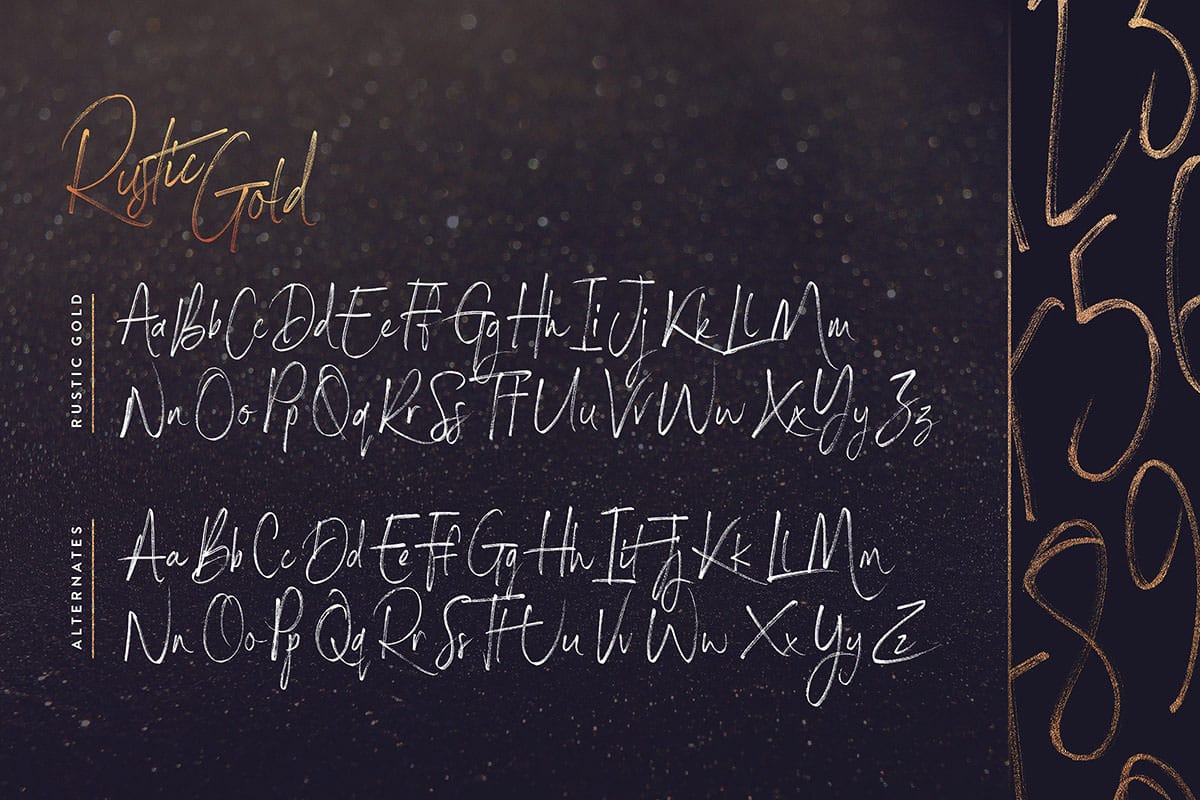 Rustic Gold
RUSTIC GOLD
Aa Bb Cc Dd Ee Ff Gg Hh Ii Jj Kk Ll Mm
Nn Oo Pp Qq Rr Ss Tt Uu Vv Ww Xx Yy Zz
ALTERNATES
Aa Bb Cc Dd Ee Ff Gg Hh Ii Jj Kk Ll Mm
Nn Oo Pp Qq Rr Ss Tt Uu Vv Ww Xx Yy Zz
5
8
9